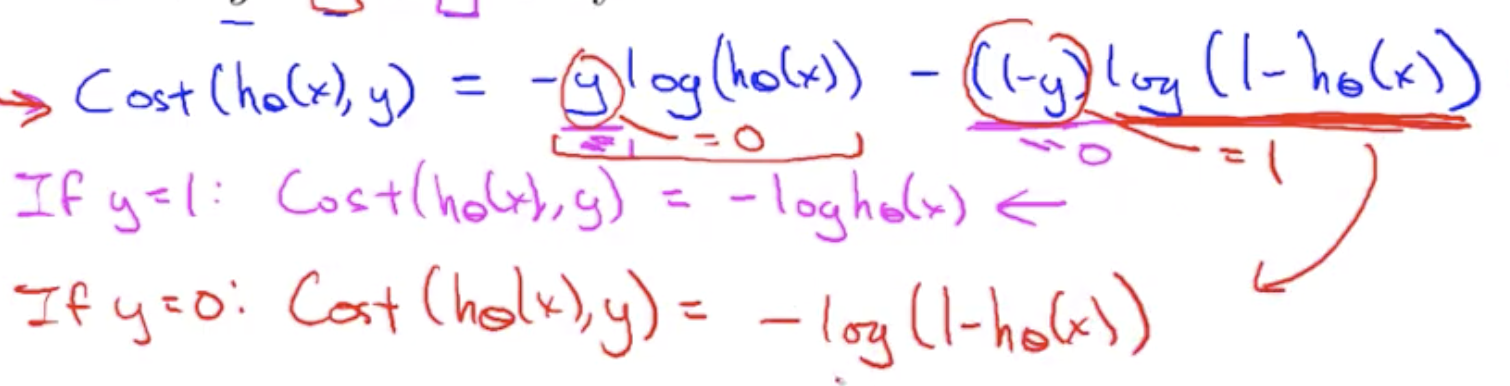 → Cost(hθ(x), y) = -y log(hθ(x)) - (1-y) log(1-hθ(x))
= 1 = 0 = 0 = 1
If y=1: Cost(hθ(x), y) = -log hθ(x) ←
If y=0: Cost(hθ(x), y) = -log(1-hθ(x))